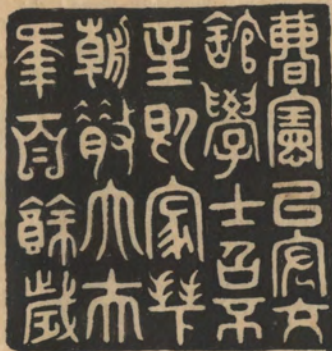 曹憲㠯宏文
舘學士召不
至即家拜
朝散大夫
年百餘歲